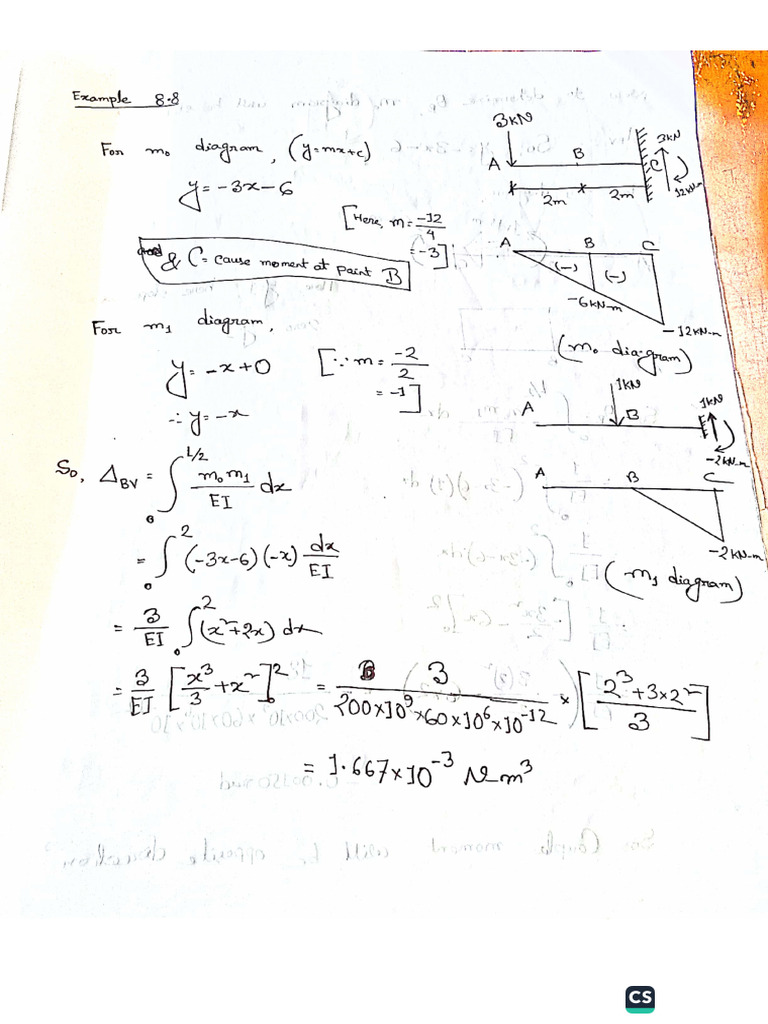 Example 8.8
For m₀ diagram, (y=mx+c)
y = -3x-6
[Here, m = -12/4
= -3]
& C = cause moment at paint B
3kN
A B C
3kN
12kN-m
2m 2m
A B C
(-) (-)
-6kN-m
-12kN-m
(m₀ diagram)
For m₁ diagram,
y = -x+0 [∵ m = -2/2
= -1]
∴ y = -x
1kN
A B
1kN
-2kN-m
A B C
-2kN-m
(m₁ diagram)
So, Δ_BV = ∫₀^(L/2) m₀m₁/EI dx
= ∫₀² (-3x-6)(-x) dx/EI
= 3/EI ∫₀² (x²+2x) dx
= 3/EI [x³/3 + x²]₀² = 3/(200×10⁹×60×10⁶×10⁻¹²) × [(2³+3×2²)/3]
= 1.667×10⁻³ N-m³
CS